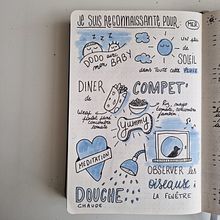 JE SUIS RECONNAISSANTE POUR...
MER
DODO SUR
MON BABY
UN PEU
DE
SOLEIL
DANS TOUTE CETTE PLUIE
DINER
DE
COMPET'
YUMMY
MEDITATION
OBSERVER LES
OISEAUX à
LA FENÊTRE
DOUCHE
CHAUDE